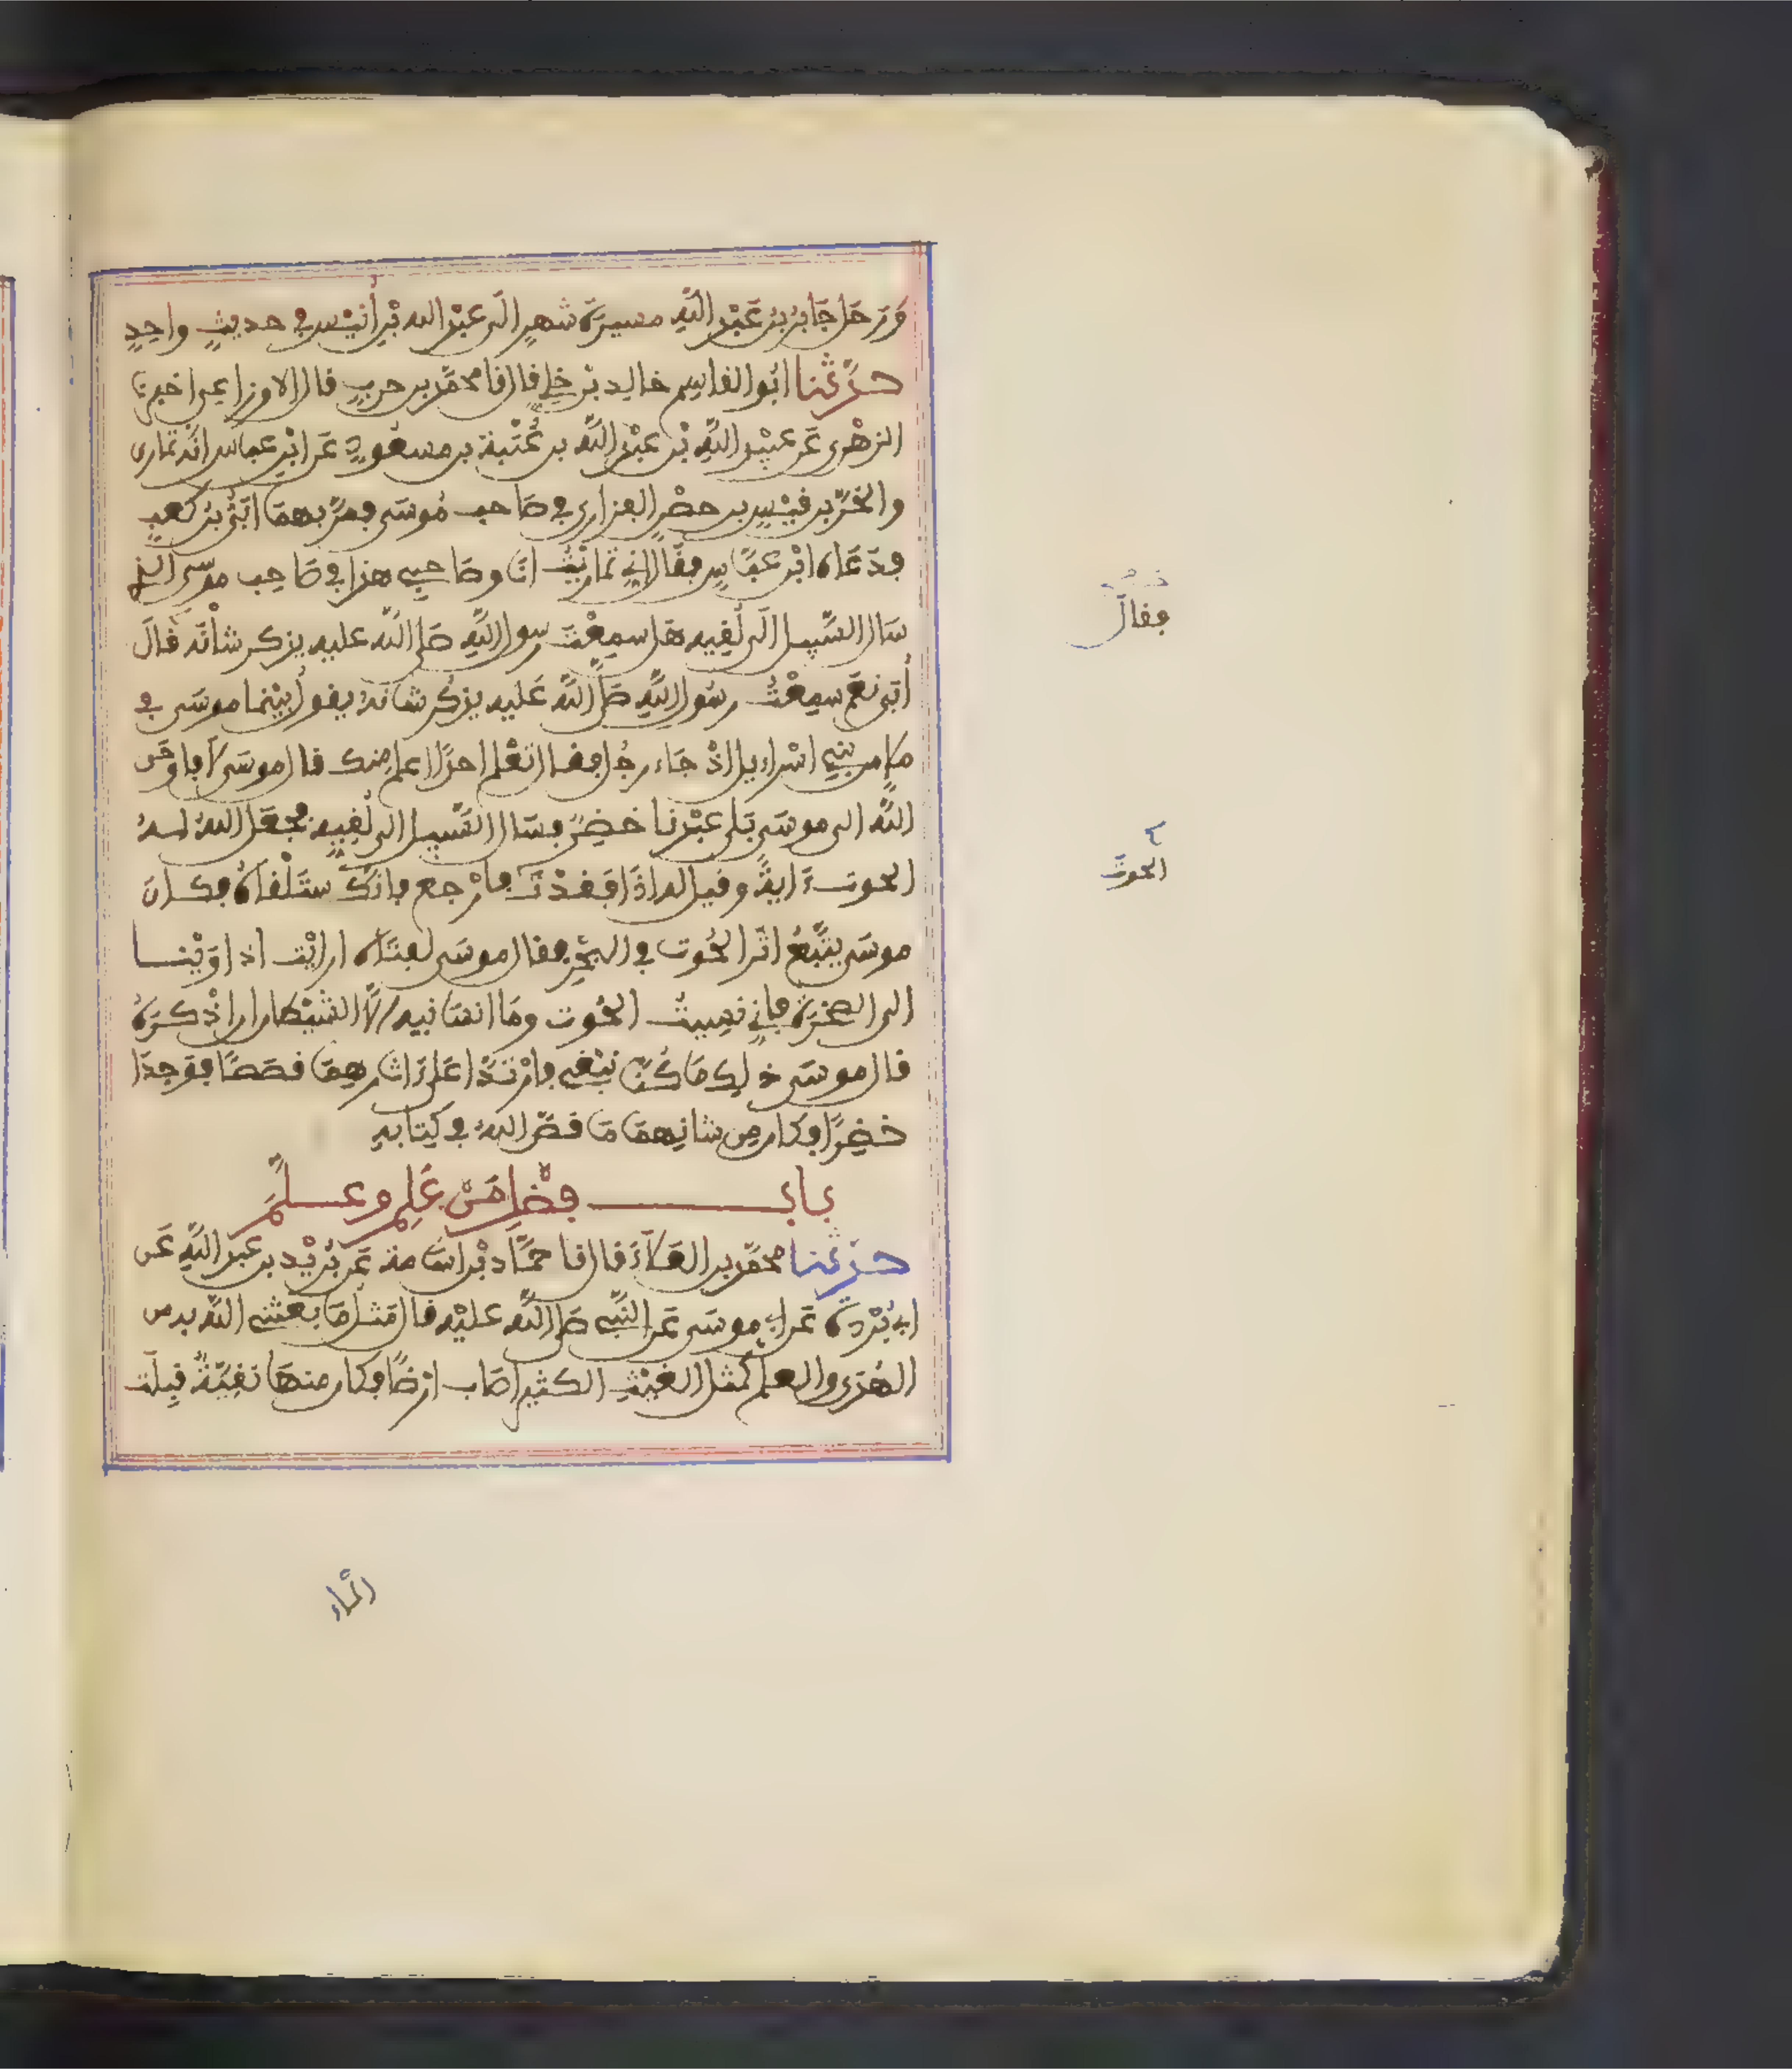 وَرَحَل جَابِرُ بْنُ عَبْدِ اللَّهِ مسيرَةَ شهرٍ الَى عبْدِ الله بْنِ أُنَيْسٍ في حديثٍ واحِدٍ
حدَّثنا ابُو القاسِم خالِد بْن خلِيٍّ قال نا محمَّد بن حربٍ قال الاوزاعي اخبرنا
الزهْري عَن عبيْدِ اللَّهِ بْن عبْدِ اللَّه بن عُتْبة بن مسعُودٍ عَن ابْنِ عباس انه تمارى
والحُرّ بن قيْسِ بن حصْنٍ الفزاري في صَاحب مُوسَى فمرَّ بهمَا ابَيُّ بنُ كعبٍ
فدَعَاه ابْن عبَّاسٍ فقَال انّي تمارَيْتُ انَا وصَاحبي هذا في صَاحِب موسَى الذي
سَال السَّبيل الَى لُقيه هَل سمِعْتَ رسول اللَّهِ صَلى اللَّه عليه يذكر شأنَه قَالَ
أُبَي نعَم سمِعْتُ رسُول اللَّهِ صَلى اللَّه عَليه يذكُر شانه يقولُ بيْنما موسَى في
ملإ من بنِي اسْراءيل اذْ جَاءه رجُل فقال تعْلم احدًا اعلم مِنك قال موسَى لا فاوحَى
اللَّه الى موسَى بَلى عبْدنا خضِرٌ فسَال السَّبيل الى لُقِيِّه فجعَل اللهُ لَهُ
الحوت ءَايةً وقيل له اذَا فقدْتَ فارْجع فانكَ ستَلْقاهُ فكانَ
موسَى يتَّبعُ اثَر الحُوت في البحْرِ فقال موسَى لفتَاه ارايْت اذ اوَيْنا
الى الصخرَة فإني نسِيتُ الحُوت ومَا انسَانيه إلاَّ الشيْطان ان اذْكُرَهُ
قال موسَى ذلك مَا كُنَّا نبْغي فارْتدَّا عَلى ءَاثارهِمَا قصَصًا فوَجدَا
خضِرًا فكان مِن شانِهمَا مَا قصَّ اللهُ في كِتابهِ
باب فضْل مَنْ عَلِم وعلَّمَ
حدَّثنا محمّد بن العَلاَءِ قال نا حمَّاد بْن اسَامة عَن بُرَيْد بن عبد اللَّهِ عَن
ابي بُرْدَة عَن ابي موسَى عَن النَّبيّ صَلى اللَّه عليْه قال مَثل مَا بعثني اللَّه به من
الهُدى والعلم كمثل الغيْثِ الكثير اصَاب ارْضًا فكان منهَا نقِيّةٌ قبِلَت
فقالَ
الحوتَ
المَاء